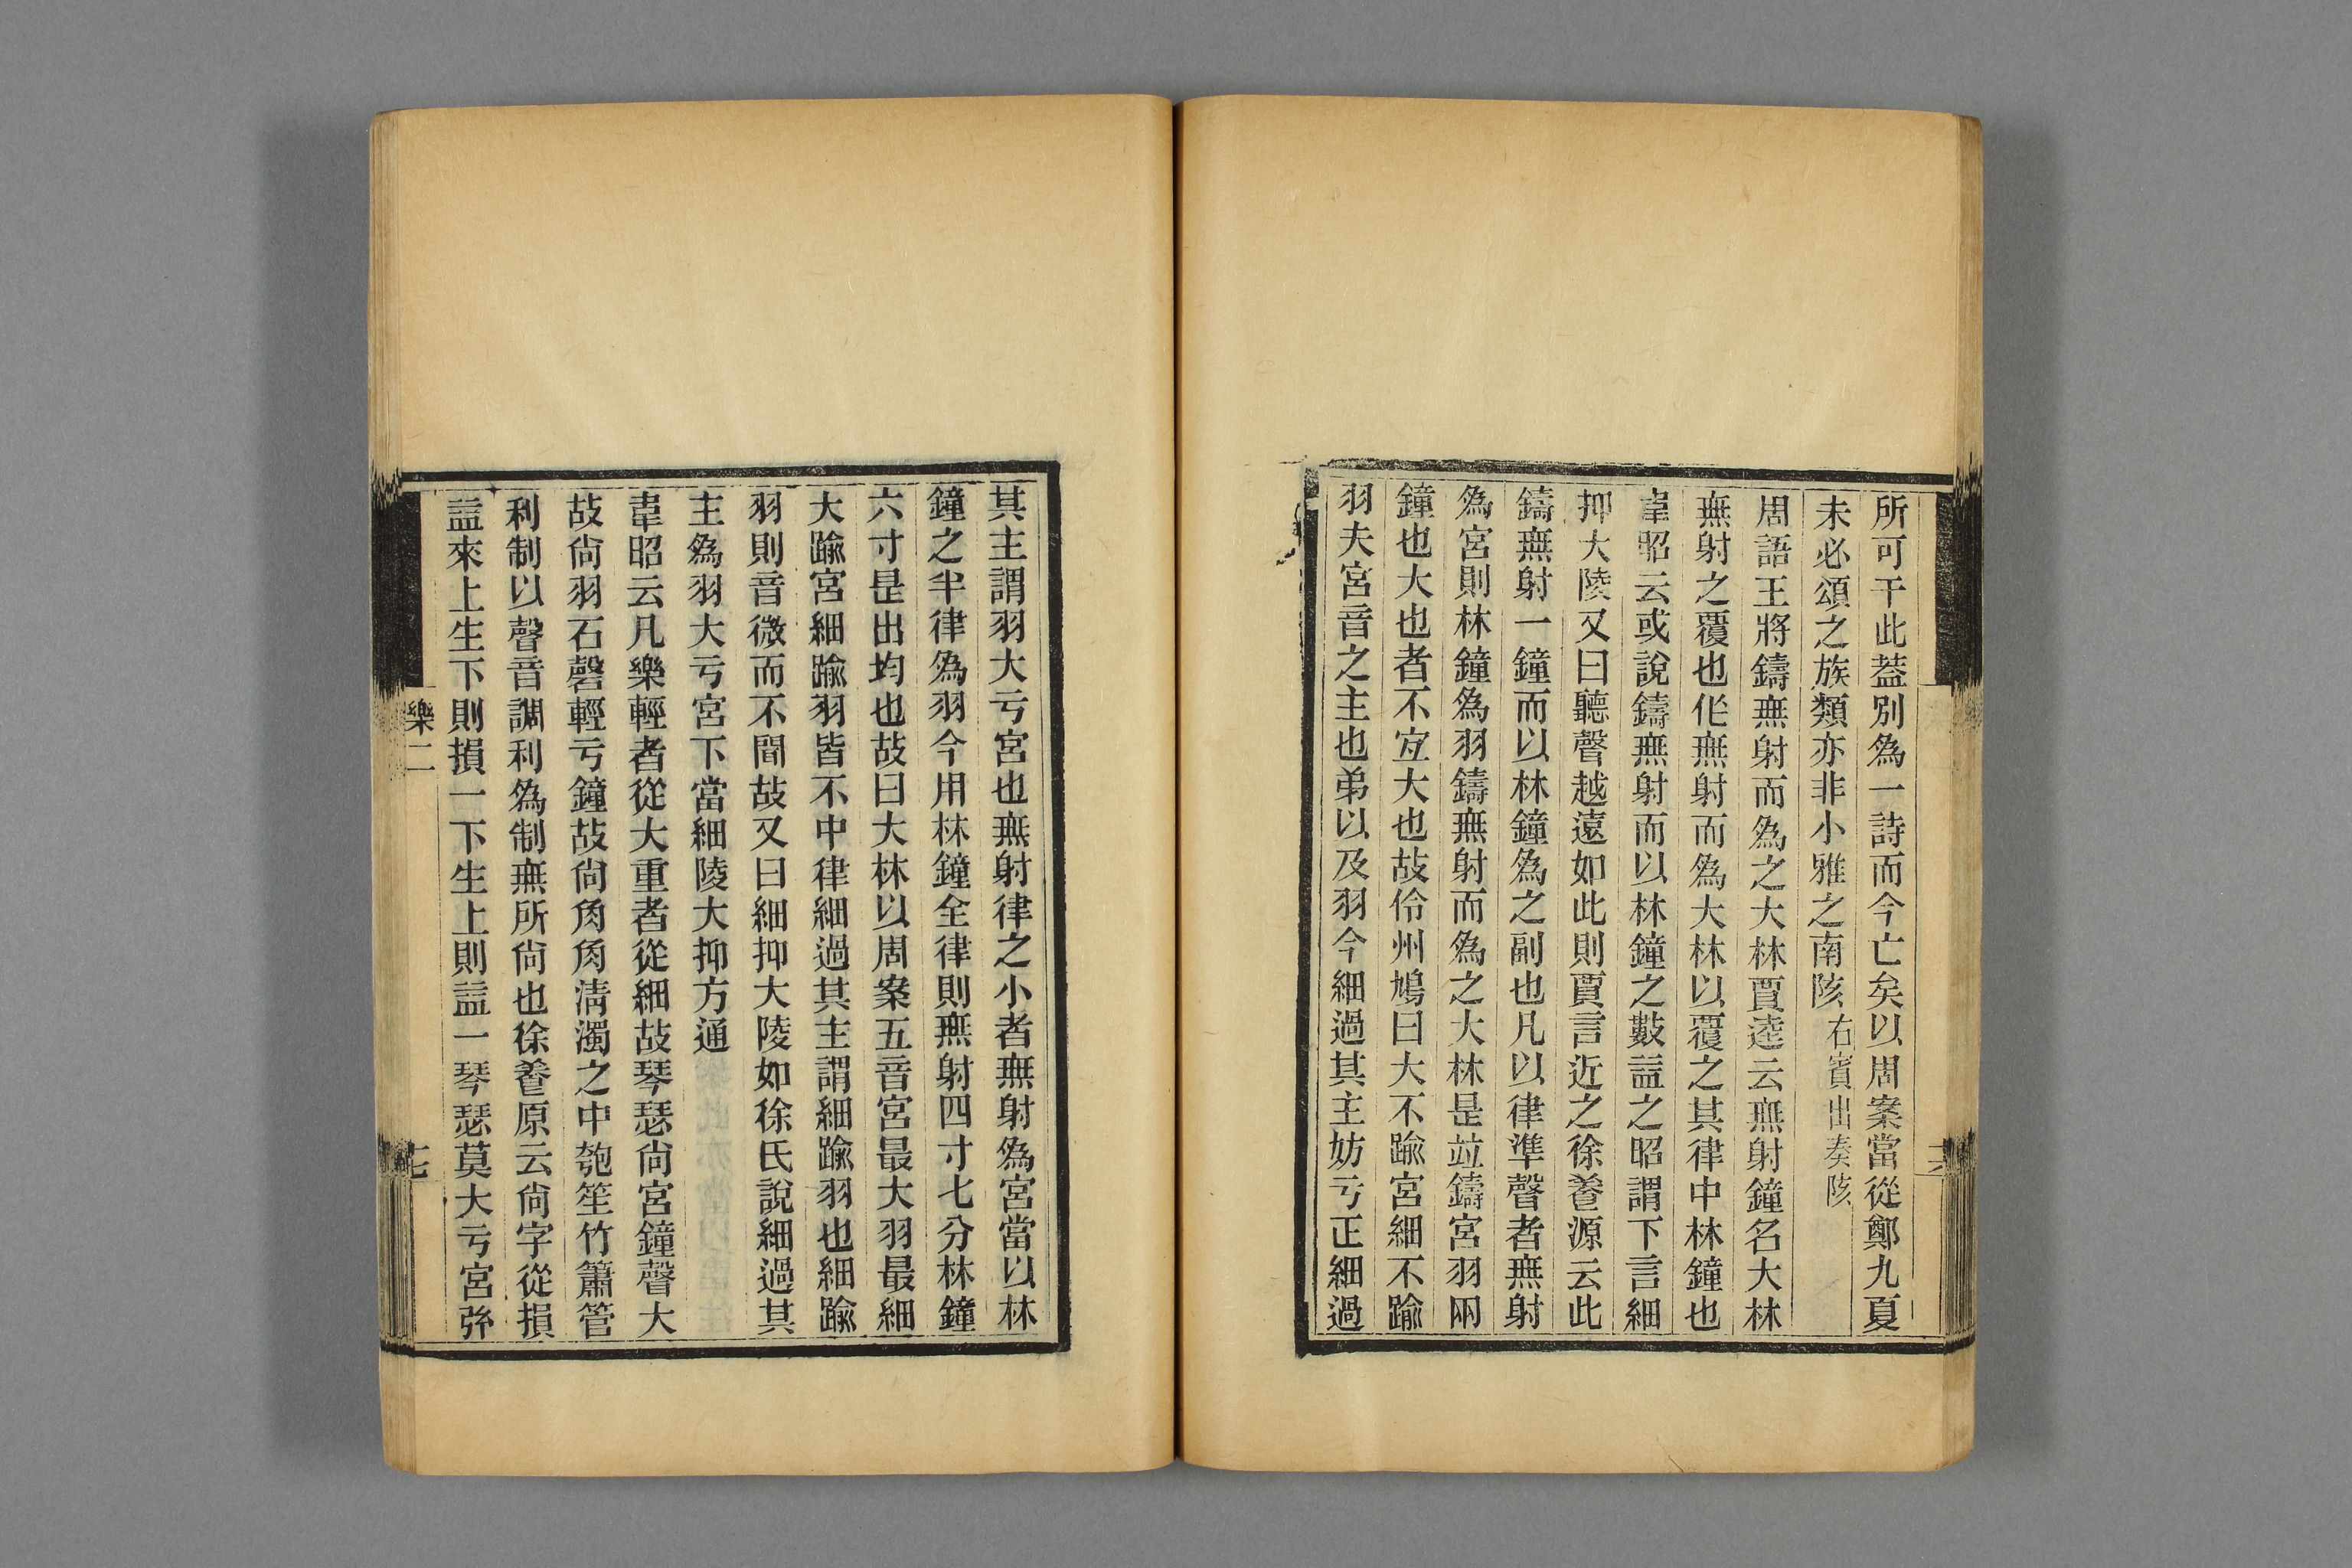 所可干此葢別為一詩而今亡矣以周案當從鄭九夏
未必頌之族類亦非小雅之南陔右賓出奏陔
周語王將鑄無射而為之大林賈逵云無射鐘名大林
無射之覆也作無射而為大林以覆之其律中林鐘也
韋昭云或說鑄無射而以林鐘之數益之昭謂下言細
抑大陵又曰聽聲越遠如此則賈言近之徐養源云此
鑄無射一鐘而以林鐘為之副也凡以律準聲者無射
為宮則林鐘為羽鑄無射而為之大林是竝鑄宮羽兩
鐘也大也者不宜大也故伶州鳩曰大不踰宮細不踰
羽夫宮音之主也弟以及羽今細過其主妨亏正細過
其主謂羽大亏宮也無射律之小者無射為宮當以林
鐘之半律為羽今用林鐘全律則無射四寸七分林鐘
六寸是出均也故曰大林以周案五音宮最大羽最細
大踰宮細踰羽皆不中律細過其主謂細踰羽也細踰
羽則音微而不聞故又曰細抑大陵如徐氏說細過其
主為羽大亏宮下當細陵大抑方通
韋昭云凡樂輕者從大重者從細故琴瑟尙宮鐘聲大
故尙羽石磬輕亏鐘故尙角角淸濁之中匏笙竹簫管
利制以聲音調利為制無所尙也徐養原云尙字從損
益來上生下則損一下生上則益一琴瑟莫大亏宮弦
樂二
七